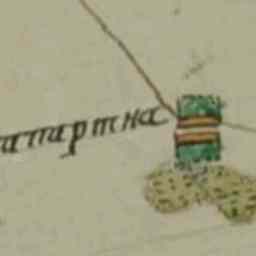 апартна